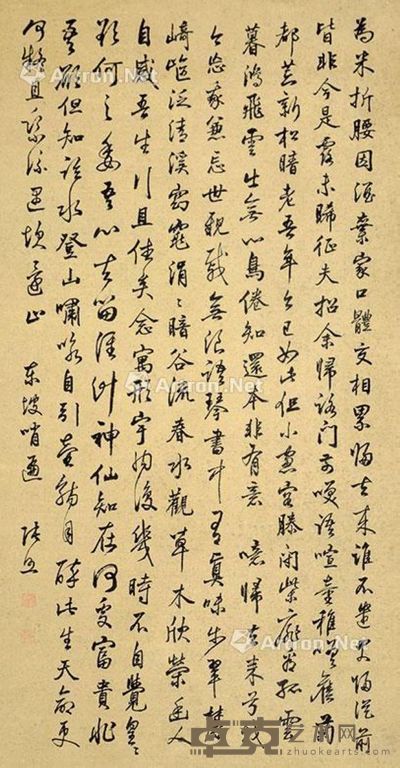 為米折腰因酒棄家口體交相累歸去來誰不遣君歸從前
皆非今是露未晞征夫指余歸路門前笑語喧童稚嗟舊菊
都荒新松暗老吾年今已如此但小窗容膝閉柴扉看孤雲
暮鴻飛雲出無心鳥倦知還本非有意 噫歸去來兮我
今忘我兼忘世親戚無浪語琴書中有真味步翠麓
崎嶇泛清溪窈窕涓涓暗谷流春水觀草木欣榮幽人
自感吾生行且休矣念寓形宇內復幾時不自覺皇皇
欲何之委吾心去留誰計神仙知在何處富貴非
吾願但知臨水登山嘯詠自引壺觴自醉此生天命更
何疑且乘流遇坎還止 東坡哨遍 張照
Artron.Net
Artron.Net
Artron.Net
Artron.Net
卓克艺术网
www.zhuokearts.com